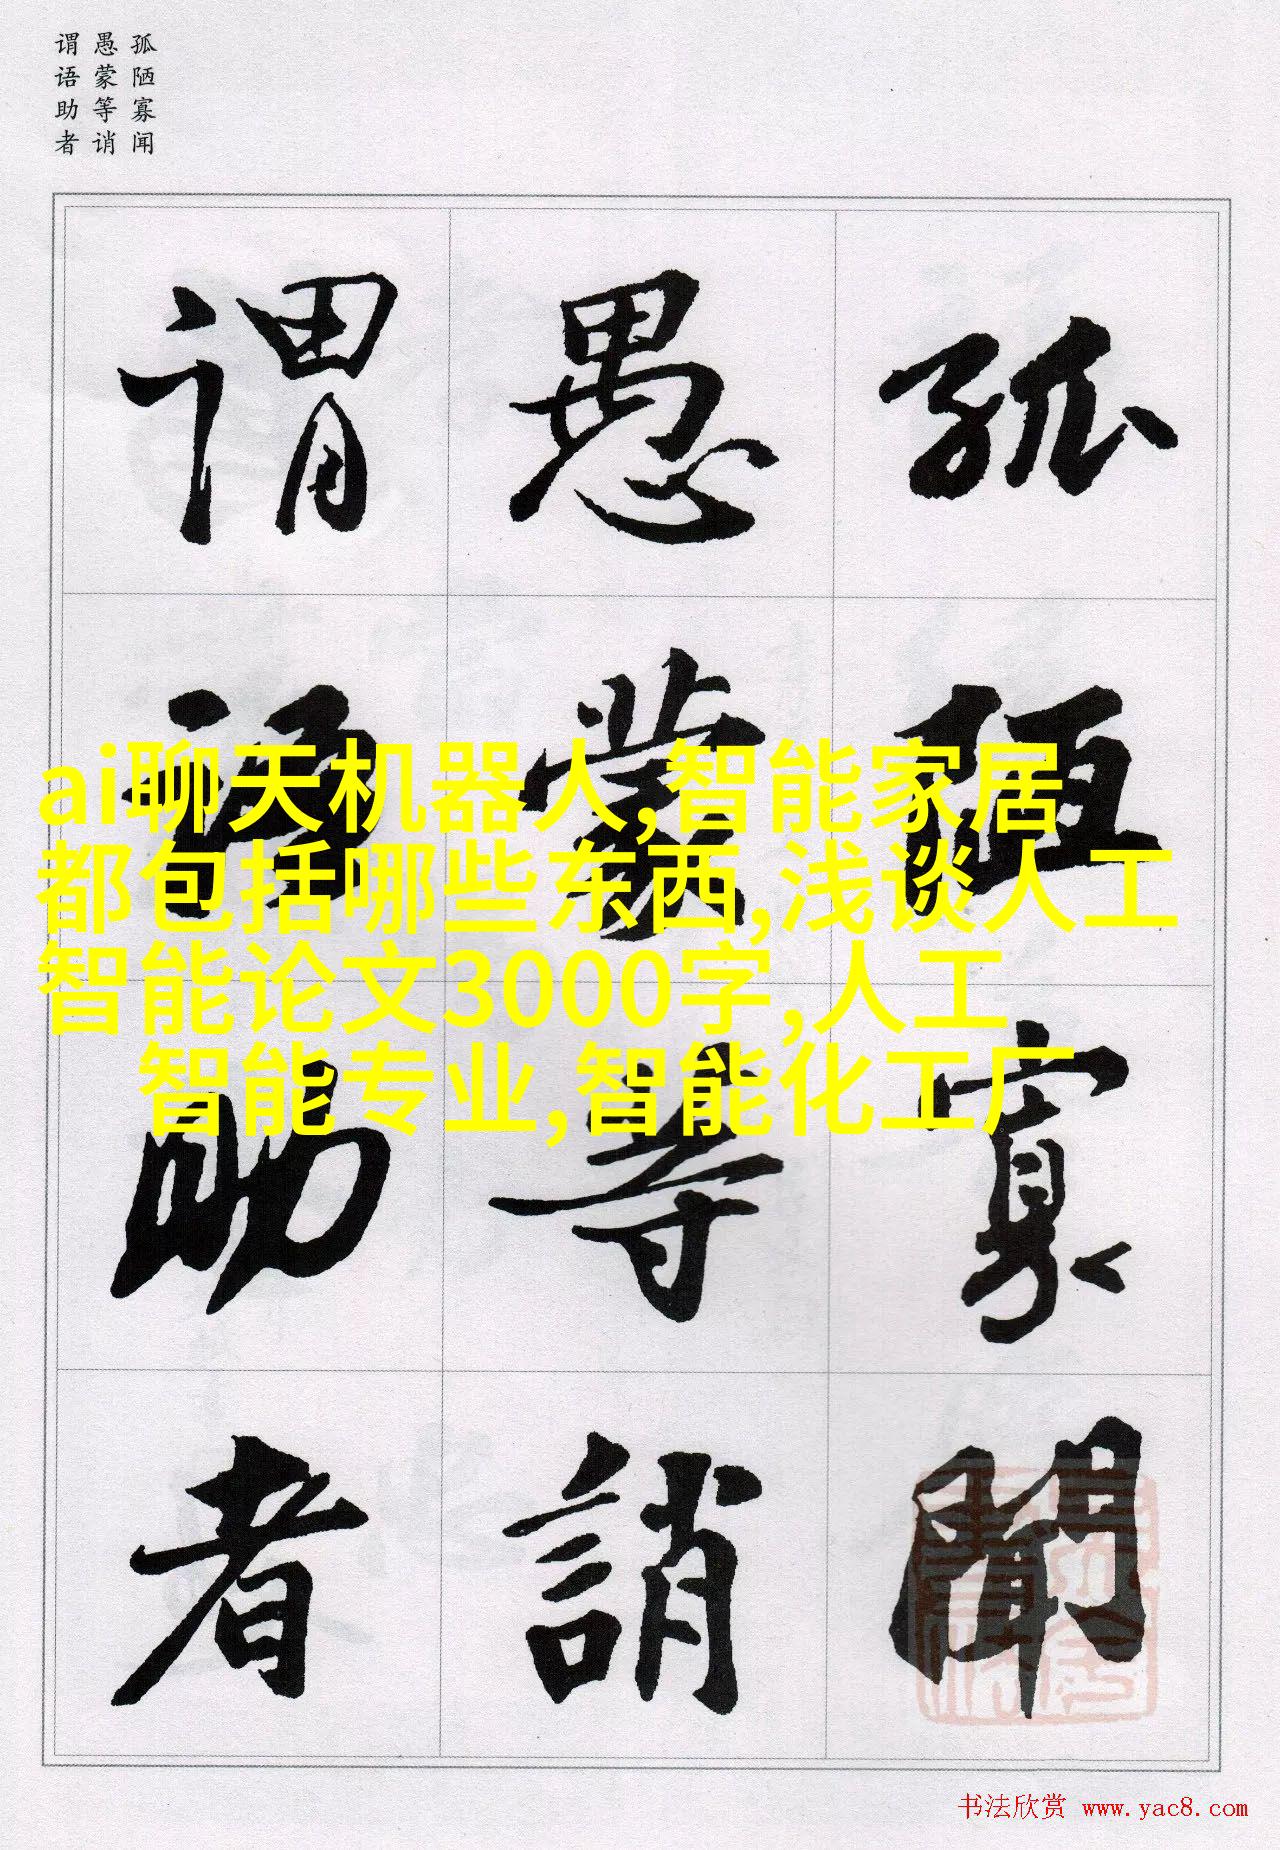 孤陋寡闻
愚蒙等诮
谓语助者
孤陋寡聞
愚蒙等誚
谓语助者
ai聊天机器人,智能家居
都包括哪些东西,浅谈人工
智能论文3000字,人工
智能专业,智能化工厂
书法欣赏 www.yac8.com